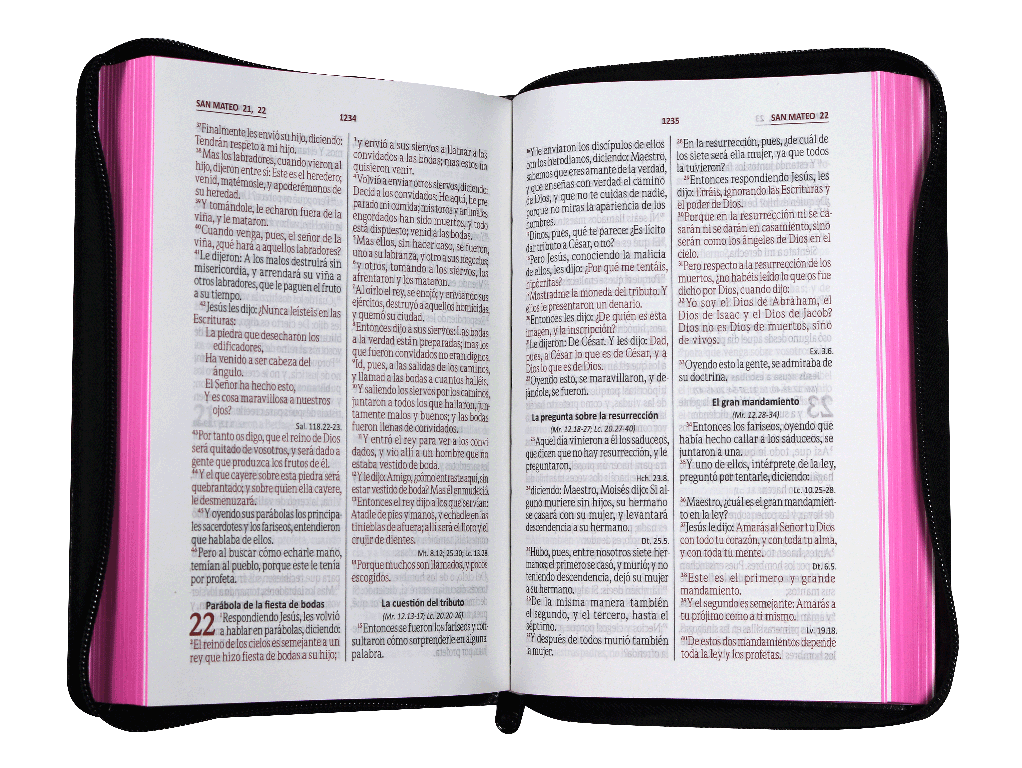 SAN MATEO 21, 22
1234
37Finalmente les envió su hijo, diciendo:
Tendrán respeto a mi hijo.
38Mas los labradores, cuando vieron al
hijo, dijeron entre sí: Este es el heredero;
venid, matémosle, y apoderémonos de
su heredad.
39Y tomándole, le echaron fuera de la
viña, y le mataron.
40Cuando venga, pues, el señor de la
viña, ¿qué hará a aquellos labradores?
41Le dijeron: A los malos destruirá sin
misericordia, y arrendará su viña a
otros labradores, que le paguen el fruto
a su tiempo.
42Jesús les dijo: ¿Nunca leísteis en las
Escrituras:
La piedra que desecharon los
edificadores,
Ha venido a ser cabeza del
ángulo.
El Señor ha hecho esto,
Y es cosa maravillosa a nuestros
ojos?
Sal. 118.22-23.
43Por tanto os digo, que el reino de Dios
será quitado de vosotros, y será dado a
gente que produzca los frutos de él.
44Y el que cayere sobre esta piedra será
quebrantado; y sobre quien ella cayere,
le desmenuzará.
45Y oyendo sus parábolas los principa-
les sacerdotes y los fariseos, entendieron
que hablaba de ellos.
46Pero al buscar cómo echarle mano,
temían al pueblo, porque este le tenía
por profeta.
Parábola de la fiesta de bodas
22 1Respondiendo Jesús, les volvió
a hablar en parábolas, diciendo:
2El reino de los cielos es semejante a un
rey que hizo fiesta de bodas a su hijo;
3y envió a sus siervos a llamar a los
convidados a las bodas; mas estos no
quisieron venir.
4Volvió a enviar otros siervos, diciendo:
Decid a los convidados: He aquí, he pre-
parado mi comida; mis toros y animales
engordados han sido muertos, y todo
está dispuesto; venid a las bodas.
5Mas ellos, sin hacer caso, se fueron,
uno a su labranza, y otro a sus negocios;
6y otros, tomando a los siervos, los
afrentaron y los mataron.
7Al oírlo el rey, se enojó; y enviando sus
ejércitos, destruyó a aquellos homicidas,
y quemó su ciudad.
8Entonces dijo a sus siervos: Las bodas
a la verdad están preparadas; mas los
que fueron convidados no eran dignos.
9Id, pues, a las salidas de los caminos,
y llamad a las bodas a cuantos halléis.
10Y saliendo los siervos por los caminos,
juntaron a todos los que hallaron, jun-
tamente malos y buenos; y las bodas
fueron llenas de convidados.
11Y entró el rey para ver a los convi
dados, y vio allí a un hombre que no
estaba vestido de boda.
12Y le dijo: Amigo, ¿cómo entraste aquí, sin
estar vestido de boda? Mas él enmudeció.
13Entonces el rey dijo a los que servían:
Atadle de pies y manos, y echadle en las
tinieblas de afuera; allí será el lloro y el
crujir de dientes.
Mt. 8.12; 25.30; Lc. 13.28.
14Porque muchos son llamados, y pocos
escogidos.
La cuestión del tributo
(Mr. 12.13-17; Lc. 20.20-26)
15Entonces se fueron los fariseos y con-
sultaron cómo sorprenderle en alguna
palabra.
1235
SAN MATEO 22
16Y le enviaron los discípulos de ellos
con los herodianos, diciendo: Maestro,
sabemos que eres amante de la verdad,
y que enseñas con verdad el camino
de Dios, y que no te cuidas de nadie,
porque no miras la apariencia de los
hombres.
17Dinos, pues, qué te parece: ¿Es lícito
dar tributo a César, o no?
18Pero Jesús, conociendo la malicia
de ellos, les dijo: ¿Por qué me tentáis,
hipócritas?
19Mostradme la moneda del tributo. Y
ellos le presentaron un denario.
20Entonces les dijo: ¿De quién es esta
imagen, y la inscripción?
21Le dijeron: De César. Y les dijo: Dad,
pues, a César lo que es de César, y a
Dios lo que es de Dios.
22Oyendo esto, se maravillaron, y de-
jándole, se fueron.
La pregunta sobre la resurrección
(Mr. 12.18-27; Lc. 20.27-40)
23Aquel día vinieron a él los saduceos,
que dicen que no hay resurrección, y le
preguntaron,
Hch. 23.8.
24diciendo: Maestro, Moisés dijo: Si al-
guno muriere sin hijos, su hermano
se casará con su mujer, y levantará
descendencia a su hermano.
Dt. 25.5.
25Hubo, pues, entre nosotros siete her-
manos; el primero se casó, y murió; y no
teniendo descendencia, dejó su mujer
a su hermano.
26De la misma manera también
el segundo, y el tercero, hasta el
séptimo.
27Y después de todos murió también
la mujer.
28En la resurrección, pues, ¿de cuál de
los siete será ella mujer, ya que todos
la tuvieron?
29Entonces respondiendo Jesús, les
dijo: Erráis, ignorando las Escrituras y
el poder de Dios.
30Porque en la resurrección ni se ca-
sarán ni se darán en casamiento, sino
serán como los ángeles de Dios en el
cielo.
31Pero respecto a la resurrección de los
muertos, ¿no habéis leído lo que os fue
dicho por Dios, cuando dijo:
32Yo soy el Dios de Abraham, el
Dios de Isaac y el Dios de Jacob?
Dios no es Dios de muertos, sino
de vivos.
Ex. 3.6.
33Oyendo esto la gente, se admiraba de
su doctrina.
El gran mandamiento
(Mr. 12.28-34)
34Entonces los fariseos, oyendo que
había hecho callar a los saduceos, se
juntaron a una.
35Y uno de ellos, intérprete de la ley,
preguntó por tentarle, diciendo:
Lc. 10.25-28.
36Maestro, ¿cuál es el gran mandamien-
to en la ley?
37Jesús le dijo: Amarás al Señor tu Dios
con todo tu corazón, y con toda tu alma,
y con toda tu mente.
Dt. 6.5.
38Este es el primero y grande
mandamiento.
39Y el segundo es semejante: Amarás a
tu prójimo como a ti mismo.
Lv. 19.18.
40De estos dos mandamientos depende
toda la ley y los profetas.